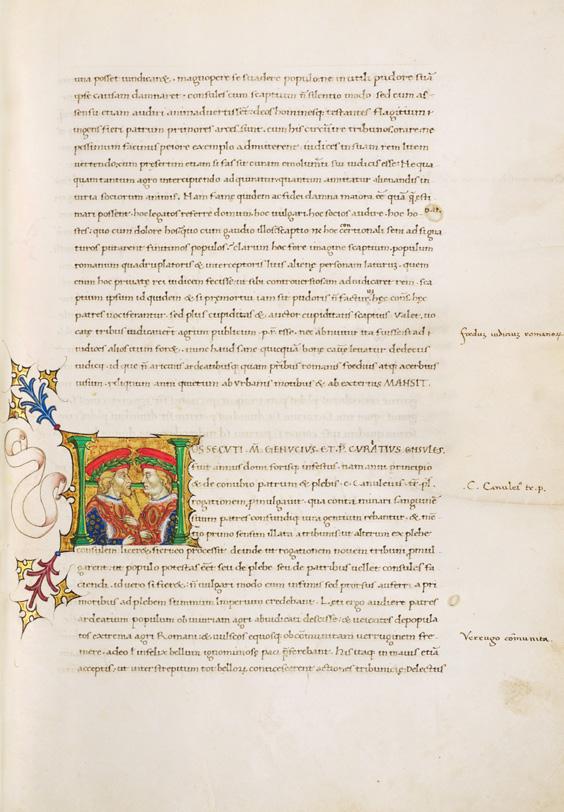 una posset iudicare, magnopere se suadere populo ne inutili pudore suā
ipse causam damnaret. consules cum scaptium ñ silentio modo sed cum as-
sensu etiam audiri animaduertissēt. deos hominesq; testantes flagitium
ingens fieri patrum primores arcessunt. cum his circuire tribus orare ne
pessimum facinus peiore exemplo admitterent iudices in suam rem litem
uertendo. cum presertim etiam si fas sit curam emolumti sui iudici esse. Ne qua
quam tantum agro intercipiendo adquiratur quantum amittatur alienandis in
iuria sociorum animis. Nam fame quidem ac fidei damna maiora eē quā q̄ esti
mari possent. hoc legatos referre domum. hoc uulgari. hoc socios audire. hoc ho-
stes. quo cum dolore hos quo cum gaudio illos. scaptio ne hoc contionali seni adsigna
turos putarent finitimos populos. clarum hoc fore imagine scaptium. populum
romanum quadruplatoris & interceptoris litis aliene personam laturum. quem
enim hoc priuate rei iudicem fecisse ut sibi controuersiam adiudicaret rem. sca
ptium ipsum id quidem & si premortui iam sit pudoris ñ facturum. hec consules hec
patres uociferantur. sed plus cupiditas & auctor cupiditatis scaptius. Valet. uo
cate tribus iudicauert agrum publicum .p.r̄. esse. nec abnuitur ita fuisse si ad
iudices alios itum foret. nunc haud sane quicquā bono cause leuatur dedecus
iudicii. id que ñ aricinis ardeatibusq; quam pribus romanis foedius atq; acerbius
uisum. reliquum anni quietum ab urbanis motibus & ab externis MANSIT.
foedus iudicius romanor
HOS SECUTI .M̄. GENUCIUS. ET .P̄. CURATIUS CONSULES.
fuit annus domi forisq; infestus. nam anni principio
& de conubio patrum & plebis .C. Canuleius .tr̄. pl̄.
rogationem promulgauit. qua contaminari sanguinē
suum patres confundiq; iura gentium rebantur. & mē
tio primo sensim illata a tribunis ut alterum ex plebe
consulem liceret fieri eo processit deinde ut rogationem nouem tribuni pmul
garent. ut populo potestas eēt seu de plebe seu de patribus uellet consules fa
ciendi. id uero si fieret ñ uulgari modo cum infimis sed prorsus auferri a pri
moribus ad plebem summum Imperium credebant. Leti ergo audiere patres
ardeatium populum ob iniuriam agri abiudicati descisse & ueientes depopula
tos extrema agri Romani. & uulscos equosq; ob comunitam uerruginem fre
mere. adeo l infelix bellum ignominiose paci pferebant. His itaq; in maius etiā
acceptis. ut inter strepitum tot bellorum conticescerent actiones tribunicie. Delectus
.C. Canuleſ tr. p.
Verrugo cōmunita.